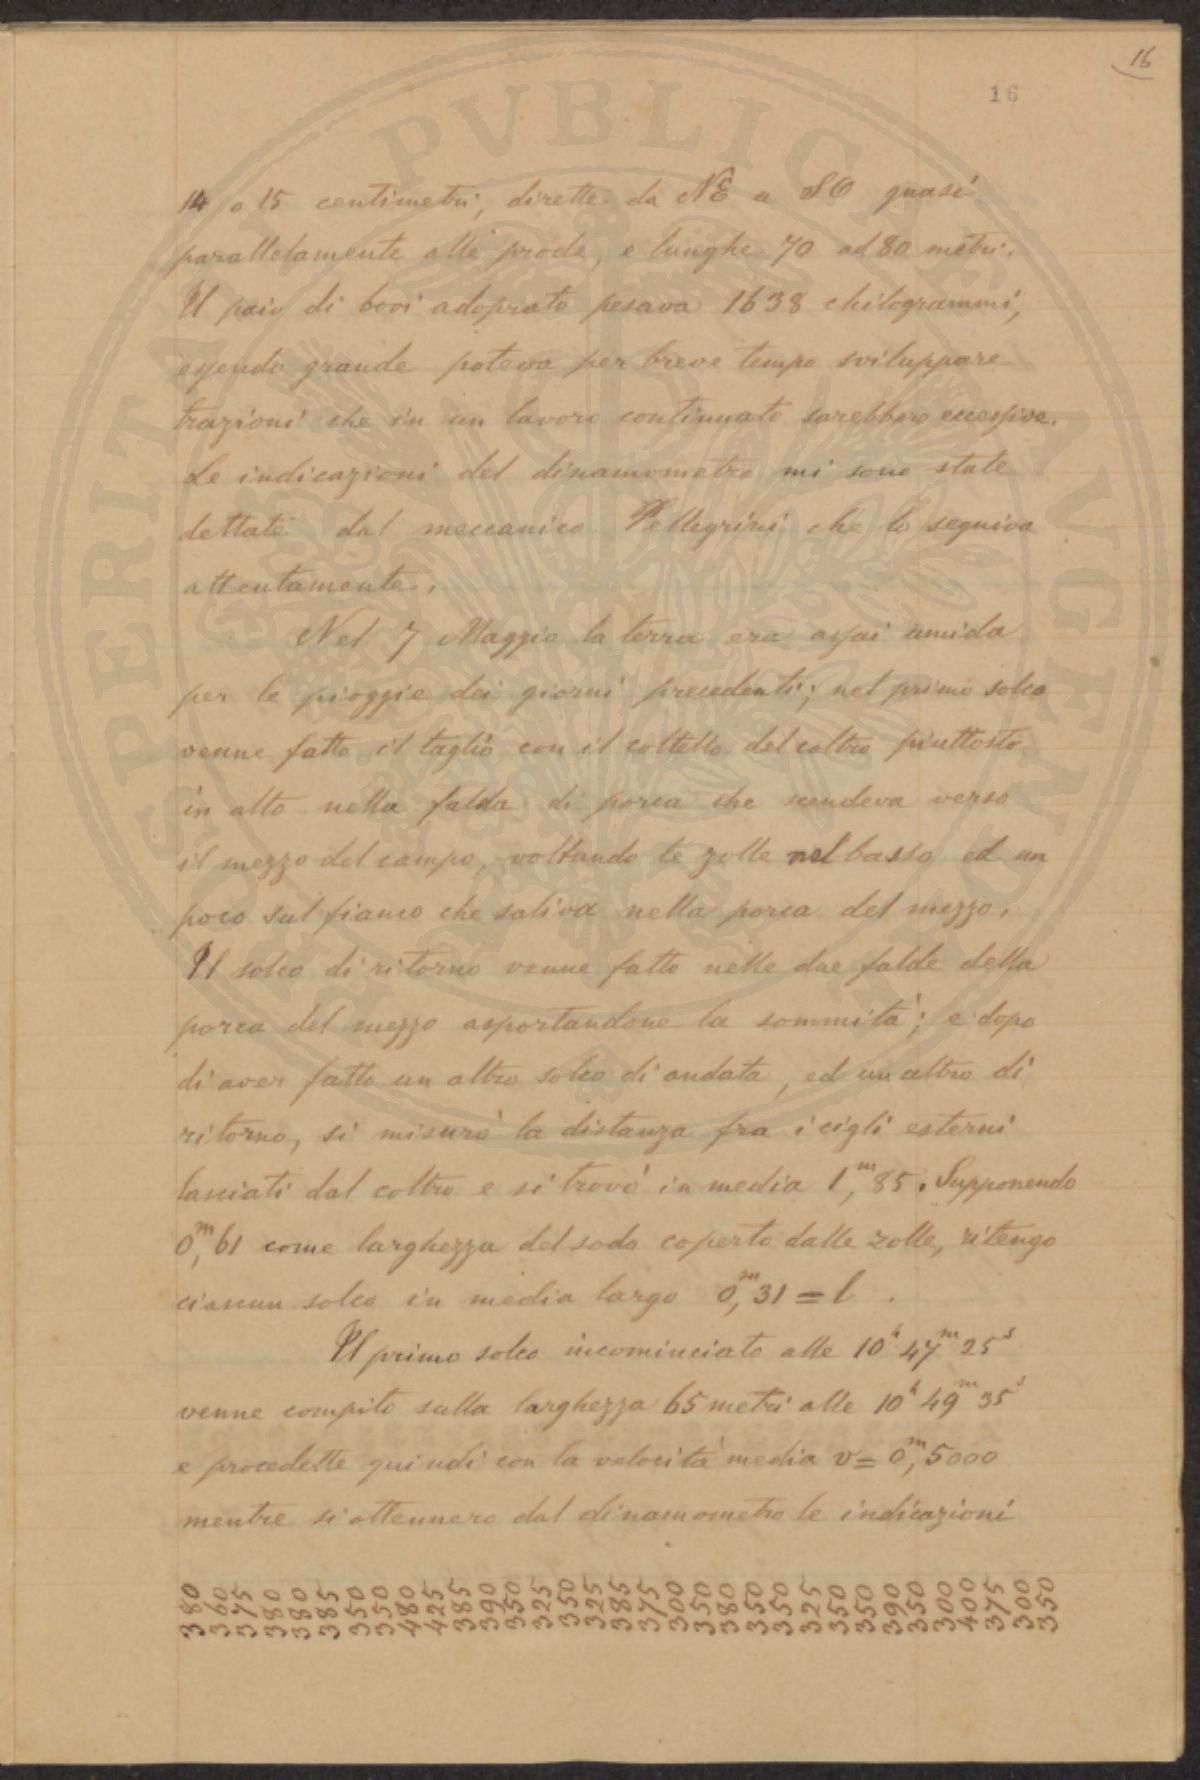 16
16
14 o 15 centimetri, dirette da NE a SO quasi
parallelamente alle prode, e lunghe 70 ad 80 metri.
Il paio di bovi adoprato pesava 1638 chilogrammi,
essendo grande poteva per breve tempo sviluppare
trazioni che in un lavoro continuato sarebbero eccessive.
Le indicazioni del dinamometro mi sono state
dettate dal meccanico Pellegrini che lo seguiva
attentamente.
Nel 7 Maggio la terra era assai umida
per le pioggie dei giorni precedenti; nel primo solco
venne fatto il taglio con il coltello del coltro piuttosto
in alto nella falda di porca che scendeva verso
il mezzo del campo, voltando le zolle nel basso ed un
poco sul fianco che saliva nella porca del mezzo.
Il solco di ritorno venne fatto nelle due falde della
porca del mezzo asportandone la sommità; e dopo
di aver fatto un altro solco di andata, ed un altro di
ritorno, si misurò la distanza fra i cigli esterni
lasciati dal coltro e si trovò in media 1,ᵐ85. Supponendo
0,ᵐ61 come larghezza del sodo coperto dalle zolle, ritengo
ciascun solco in media largo 0,ᵐ31 = l.
Il primo solco incominciato alle 10ʰ 47ᵐ 25ˢ
venne compito sulla larghezza 65 metri alle 10ʰ 49ᵐ 35ˢ
e procedette quindi con la velocità media v = 0,ᵐ5000
mentre si ottennero dal dinamometro le indicazioni
380
360
375
380
380
385
350
350
480
425
385
390
350
325
350
325
385
375
300
350
380
350
350
325
350
350
390
350
300
400
375
300
350
PERITA PVBLICA AVGENDA